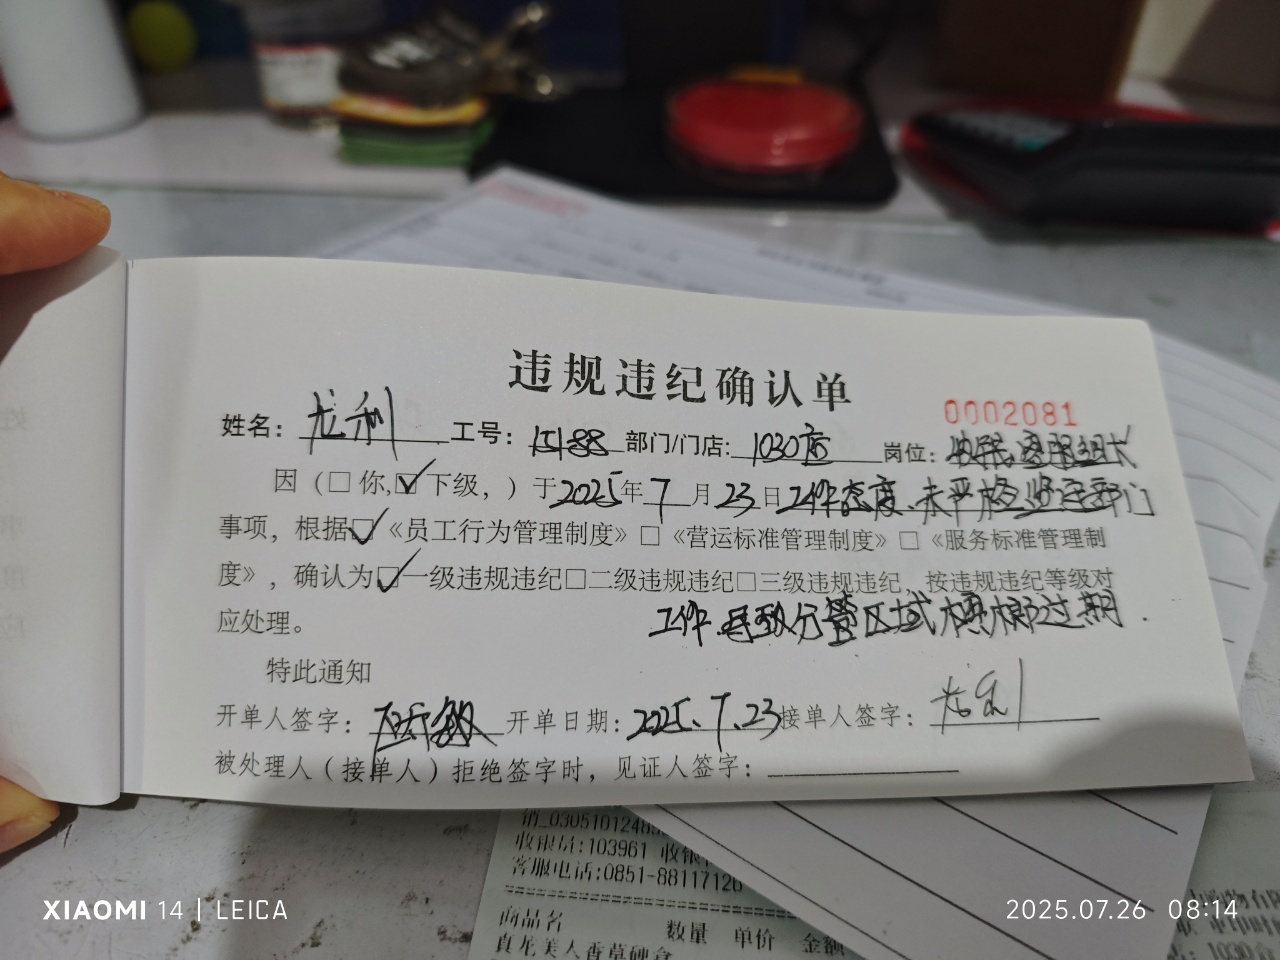 违规违纪确认单
0002081
姓名：龙利 工号： 部门/门店：1030店 岗位：收银、客服组长
因（□你，☑下级，）于2025年7月23日工作态度、未严格监管部门
事项，根据☑《员工行为管理制度》□《营运标准管理制度》□《服务标准管理制
度》，确认为☑一级违规违纪□二级违规违纪□三级违规违纪，按违规违纪等级对
应处理。
工作.导致分管区域槟榔过期.
特此通知
开单人签字： 开单日期：2025.7.23 接单人签字：龙利
被处理人（接单人）拒绝签字时，见证人签字：
收银员:103961
客服电话:0851-88117126
商品名 数量 单价 金额
真龙美人香草硬盒
XIAOMI 14 | LEICA
2025.07.26 08:14